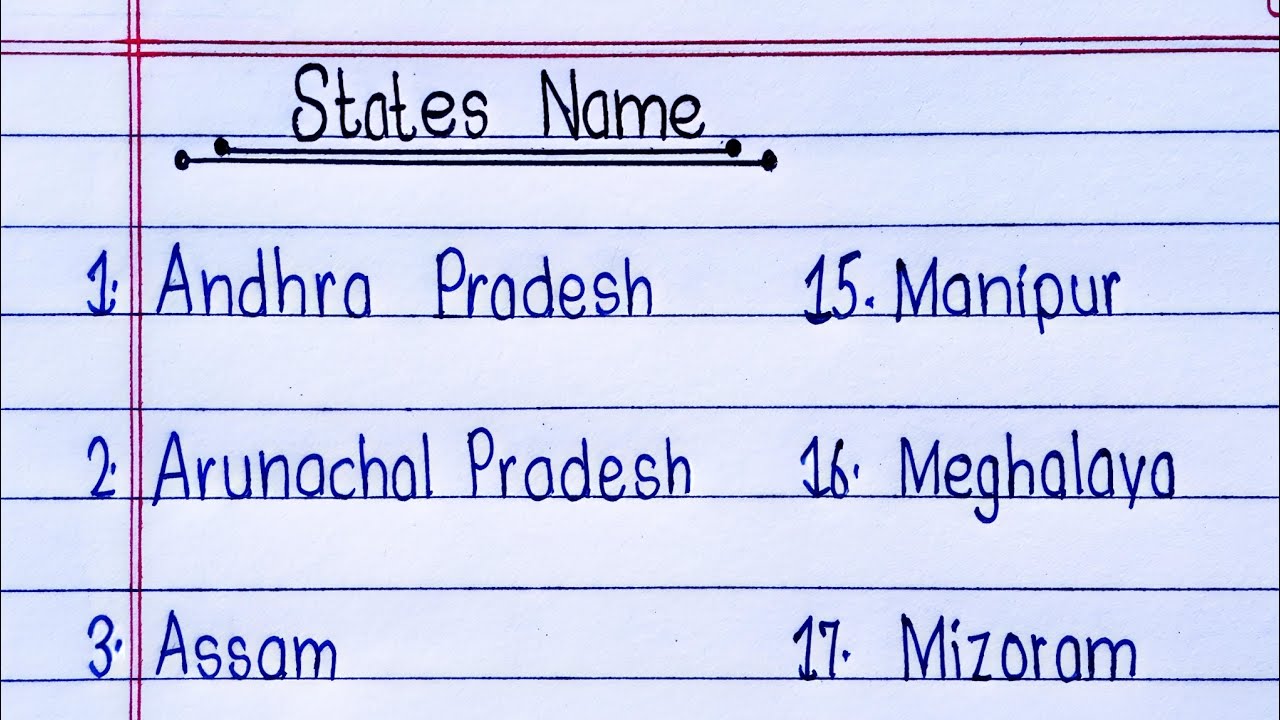 States Name
1. Andhra Pradesh
2. Arunachal Pradesh
3. Assam
15. Manipur
16. Meghalaya
17. Mizoram